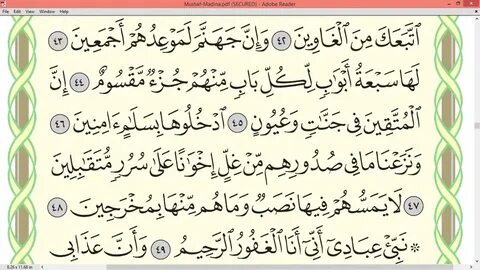 Mushaf-Madina.pdf (SECURED) - Adobe Reader
File Edit View Window Help
ٱتَّبَعَكَ مِنَ ٱلۡغَاوِينَ ٤٢ وَإِنَّ جَهَنَّمَ لَمَوۡعِدُهُمۡ أَجۡمَعِينَ ٤٣
لَهَا سَبۡعَةُ أَبۡوَٰبٖ لِّكُلِّ بَابٖ مِّنۡهُمۡ جُزۡءٞ مَّقۡسُومٌ ٤٤ إِنَّ
ٱلۡمُتَّقِينَ فِي جَنَّٰتٖ وَعُيُونٍ ٤٥ ٱدۡخُلُوهَا بِسَلَٰمٍ ءَامِنِينَ ٤٦
وَنَزَعۡنَا مَا فِي صُدُورِهِم مِّنۡ غِلٍّ إِخۡوَٰنًا عَلَىٰ سُرُرٖ مُّتَقَٰبِلِينَ
٤٧ لَا يَمَسُّهُمۡ فِيهَا نَصَبٞ وَمَا هُم مِّنۡهَا بِمُخۡرَجِينَ ٤٨
۞ نَبِّئۡ عِبَادِيٓ أَنِّيٓ أَنَا ٱلۡغَفُورُ ٱلرَّحِيمُ ٤٩ وَأَنَّ عَذَابِي
8.26 x 11.68 in